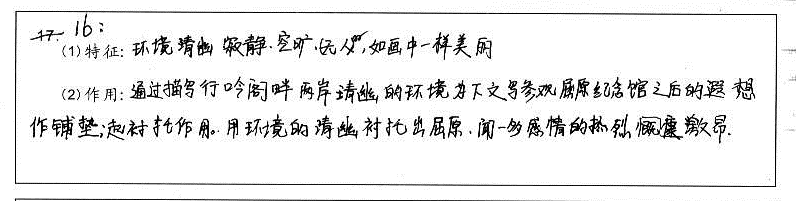 16:
(1)特征:环境清幽 寂静.空旷.无人,如画中一样美丽
(2)作用:通过描写行吟阁畔两岸清幽的环境为下文写参观屈原纪念馆之后的遐想
作铺垫;起衬托作用。用环境的清幽衬托出屈原.闻一多感情的热烈慷慨激昂.